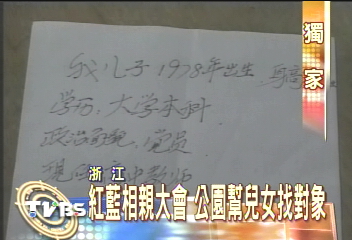 獨家
我儿子1978年出生 身高
学历、大学本科
政治面貌、党员
浙江
TVBS
紅藍相親大會 公園幫兒女找對象